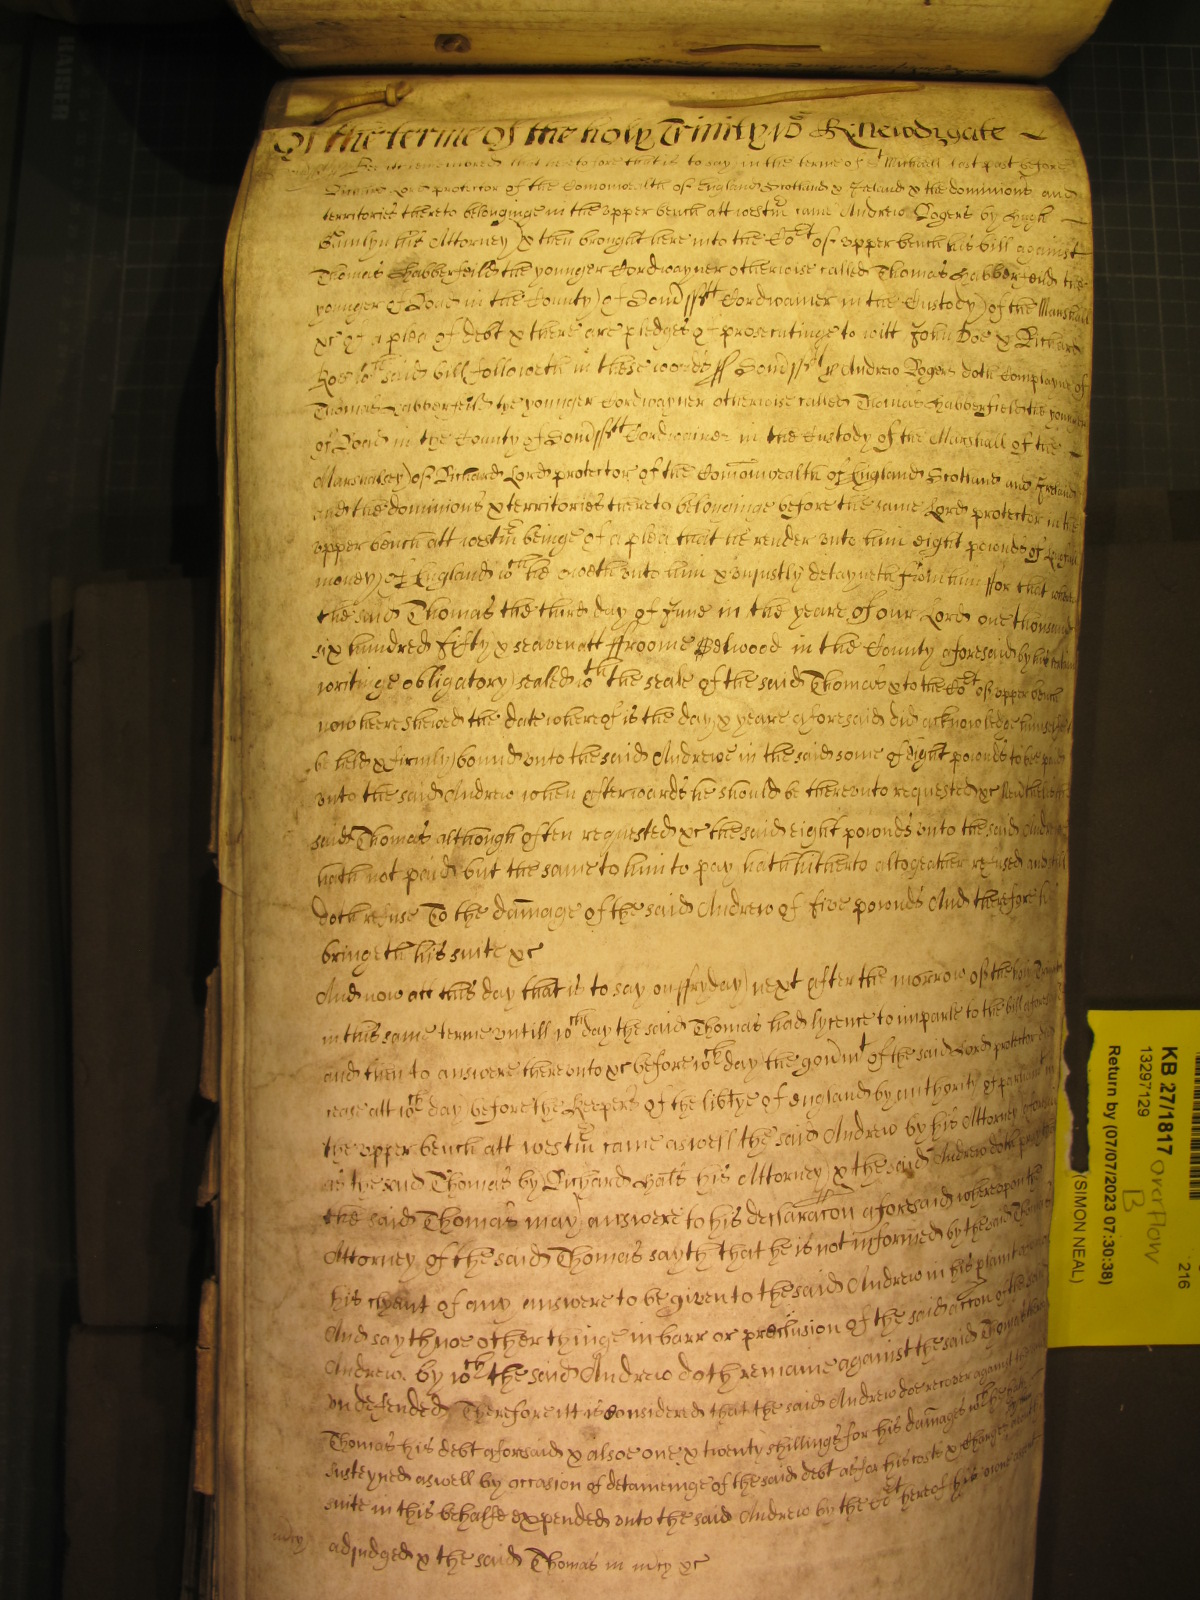 Of the terme of the holy Trinity 1659 R: Newdigate
Be it remembred that heretofore that is to say in the terme of St Michaell last past before
Richard Lord protector of the Comonwealth of England Scotland & Ireland & the dominions and
territories thereto belonginge in the upper bench att westmr came Andrew Rogers by Hugh
Gamlyn his Attorney & then brought here into the Cort of upper bench his bill against
Thomas Habberfeild the younger Cordwayner otherwise called Thomas Habberfeild the
younger of Road in the County of Somsett Cordwainer in the Custody of the Marshall
&c of a plea of debt & there are pledges of prosecutinge to witt John Doe & Richard
Roe wch said bill followeth in these words ss Somsett ss Andrew Rogers doth Complayne of
Thomas Habberfeild the younger Cordwayner otherwise called Thomas Habberfield the younger
of Road in the County of Somsett Cordwainer in the Custody of the Marshall of the
Marshalsey of Richard Lord protector of the Comonwealth of England Scotland and Ireland
and the dominions & territories thereto belonginge before the same Lord protector in the
upper bench att westmr beinge of a plea that he render unto him eight pounds of lawfull
money of England wch he oweth unto him & unjustly detayneth from him ffor that whereas
the said Thomas the third day of June in the yeare of our Lord one thousand
six hundred fifty & seaven att ffroome Selwood in the County aforesaid by his certaine
writinge obligatory sealed wth the seale of the said Thomas & to the Cort of upper bench
now heere shewed the date whereof is the day & yeare aforesaid did acknowledge himselfe to
be held & firmly bound unto the said Andrewe in the said some of eight pounds to be paid
unto the said Andrew when afterwards he should be thereunto requested &c Neverthelesse the
said Thomas although often requested &c the said eight pounds unto the said Andrew
hath not paid but the same to him to pay hath hitherto altogeather refused and still
doth refuse To the damage of the said Andrew of five pounds And therefore he
bringeth his suite &c
And now att this day that is to say on ffryday next after the morrow of the holy Trinity
in this same terme untill wch day the said Thomas had lycence to imparle to the bill aforesaid
and then to answere thereunto &c before wch day the governmt of the said Lord protector did
cease att wch day before the Keepers of the libtye of England by authority of parliament in
the upper bench att westmr came aswell the said Andrew by his Attorney aforesaid
as the said Thomas by Richard his Attorney & the said Andrew doth pray that
the said Thomas may answere to his declaracon aforesaid whereupon the
Attorney of the said Thomas sayth that he is not informed by the said Thomas
his clyent of any answere to be given to the said Andrew in his plaint aforesaid
And sayth noe other thinge in barr or preclusion of the said accon of the said
Andrew. by wch the said Andrew doth remaine against the said Thomas therein
undefended Therefore itt is Considered that the said Andrew doe recover against the said
Thomas his debt aforesaid & alsoe one & twenty shillings for his damages wch he hath
susteyned aswell by occasion of detaineinge of the said debt as for his costs & charges about his
suite in this behalfe expended unto the said Andrew by the Cort hereof his owne assent
adjudged & the said Thomas in mcy &c
mcy
KB 27/1817 overflow
B
13297129
216
Return by (07/07/2023 07:30:38)
(SIMON NEAL)